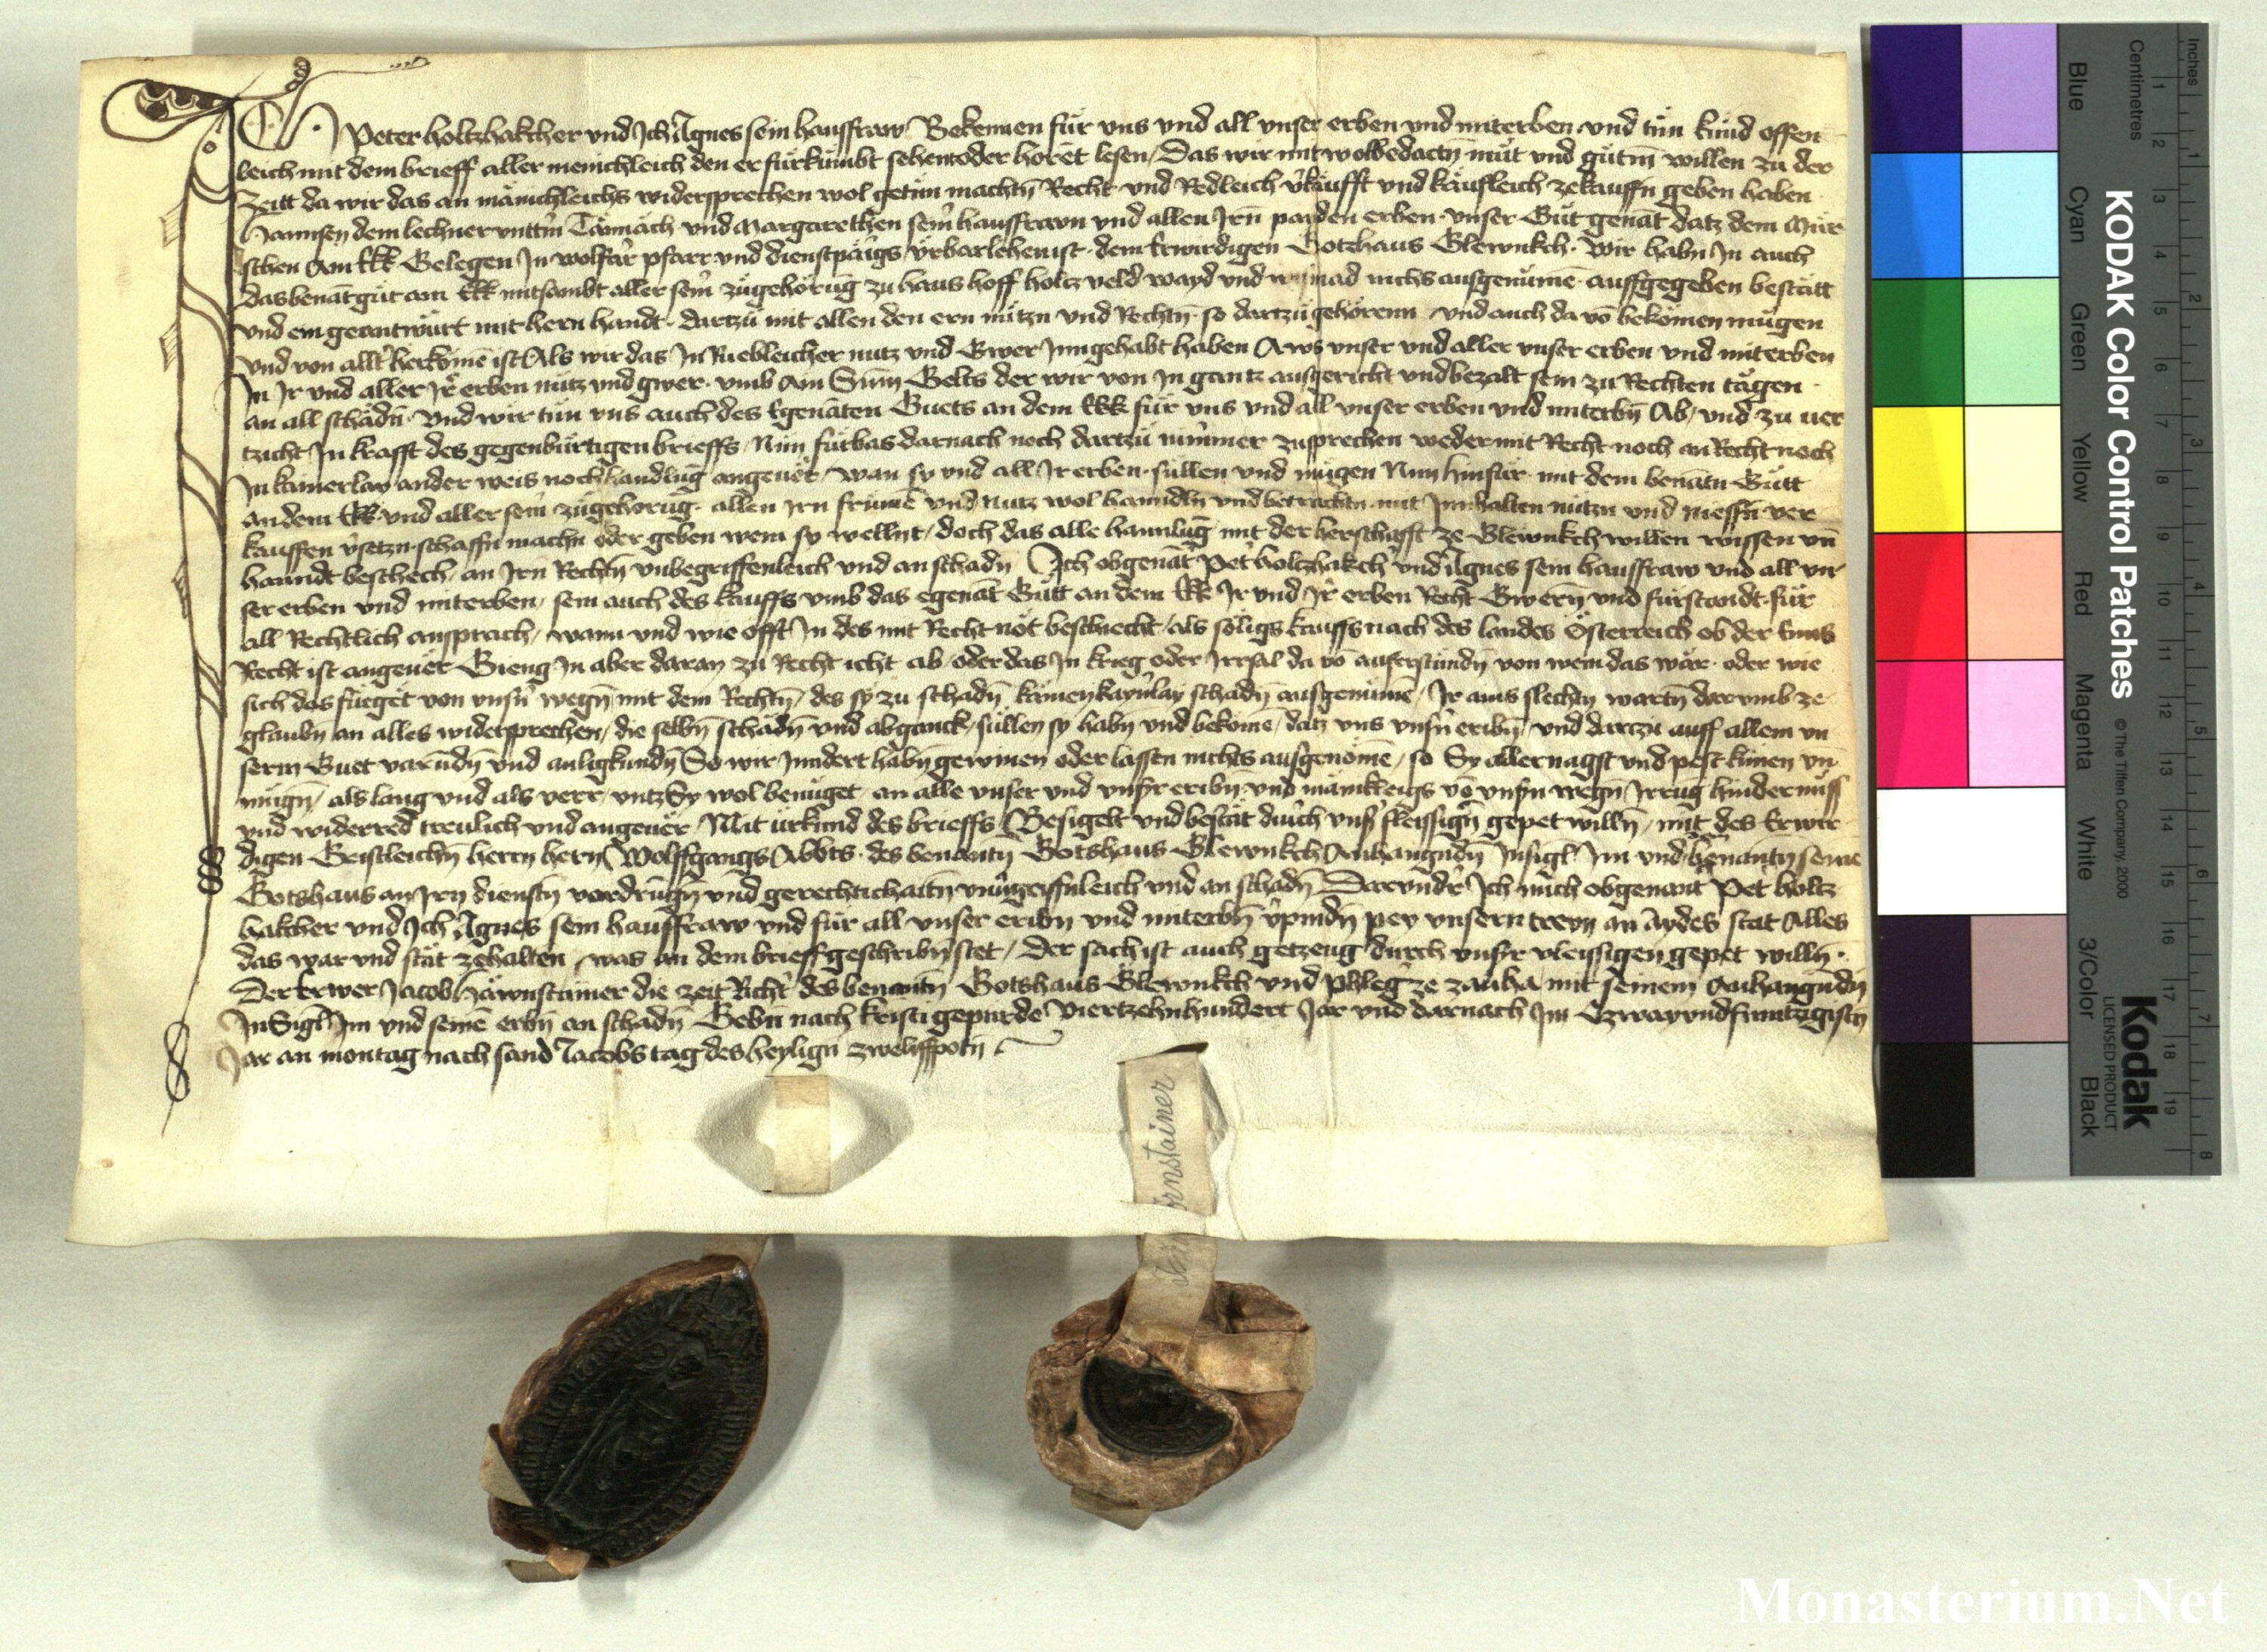 Ich Peter holtzhakcher und Ich Agnes sein hausfraw Bekennen für vns vnd all vnser erben vnd miterben vnd tün künd offen
leich mit dem brieff aller menichleich den er fürkümbt sehent oder hörēt lesen / Das wir mit wolbedactn̄ müt vnd gütm̄ willen zu der
Zeitt da wir das an mänichleichs widersprechen wol getün machtn̄ Recht vnd Redleich v̓käufft vnd käufleich zekauffn̄ geben haben
Hannsen dem lechner vntt̓m Tannach vnd Margarethen sein̓ hausfravn vnd allen Irn̄ paiden erben vnser Güt genāt datz dem Mür
schen Am Ekk Gelegen In wolfar̓ pfarr vnd dienstpärigs vrbarlehen ist dem Erwirdigen Gotzhaus Glewnkch Wir habn̄ In auch
das benāt güt am Ekk mitsambt aller sein̓ zügehörūg zu haus hoff holtz veld wayd vnd wismad nichs ausgenümē auffgegeben bestätt
vnd ein geantwürt mit hern handt dartzü mit allen den ern nützn vnd Rechtn̄ so dartzü gehörenn vnd auch da vō bekömen mügen
vnd von allt̓ herkömē ist Als wir das In Rueblicher nutz vnd Gwer Inngehabt haben Aws vnser vnd aller vnser erben vnd miterben
In Ir vnd aller Ir̓ erben nutz vnd gwer vmb Ain Sūm Gelts der wir von In gantz ausgericht vnd bezalt sein zu Rechten tägen
an all schädn̄ Vnd wir tün vns auch des Egenāten Guets an dem Ekk für vns vnd all vnser erben vnd miterbn̄ Ab / vnd zu uer
tzicht In krafft des gegenbürtigen brieffs Nün fürbas darnach noch dartzü nimmer zusprechen weder mit Recht noch an Recht noch
In kainerlay ander weis noch handlūg angeuer̓ / wan sy vnd all Ir erben süllen vnd mügen Nün hinfür mit dem benātn Gütt
an dem Ekk vnd aller sein̓ zügehörūg allen Irn frümē vnd nutz wol hanndln vnd betrachtn mit Innhalten nützn vnd niessn̄ ver
kauffen v̓setzn schaffn̄ machn oder geben wem sy wellnt / doch das alle hannlūg mit der herschafft ze Glewnkch willen wissen vn̄
hanndt beschech / an Irn Rechtn̄ vnbegriffenleich vnd an schadn̄ Ich obgenāt Pet̓ holtzhakch̓ vnd Agnes sein hausfraw vnd all vn
ser erben vnd miterben / sein auch des kauffs vmb das egenāt Gütt an dem Ekk Ir vnd Ir̓ erben Recht Gwern̄ vnd fürstandt für
all Rechtlich ansprach / wann vnd wie offt In des mit Recht nöt beschiecht / als söligs kauffs nach des landes Österreich ob der Enns
Recht ist angeuer̓ Gieng In aber daran zu Recht icht ab / oder das In krieg oder Irrsal da vō auferstündn̄ von wem das wär oder wie
sich das füeget von vnsn̓ wegn̄ mit dem Rechtn̄ / des sy zu schadn̄ kämen kayn̓lay schadn̄ ausgenümē / Ir ains slechtn wartn̄ darumb ze
glaubn̄ an alles widersprechen / die selbn̄ schädn̄ vnd abganck süllen sy habn vnd bekömē / datz vns vnsn̓ eribn̄ vnd dartzu auff allem vn
serm Guet varūdn̄ vnd anligkundn̄ So wir Inndert habn̄ gewinen oder lassen nichts ausgenömē / so Sy aller nagst vnd pest künen vn̄
mügn̄ / als lang vnd als verr / vntz Sy wol benüget an alle vnser vnd vnsr̓ eribn̄ vnd mänikleigs vō vnsn̓ wegn̄ Irrūg hindernüss
vnd widerred treulich vnd angeuer̓ / Mit ürkünd des brieffs Besigelt vnd bestät durch vnsr̓ fleissign̄ gepet willn̄ / mit des Erwir
digen Geistleichn̄ herrn hern̄ Wolffgangs Abbts des benantn̄ Gotshaus Glewnkch Anhangundn̄ Insigl Im vnd benantn̄ seine
Gotshaus an Irn̄ dienstn̄ vordrūgn̄ vnd gerechtichaitn̄ vnūgriffnleich vnd an schadn̄ Darund̓ Ich mich obgenant Pet̓ holtz
hakcher vnd Ich Agnes sein hausfraw vnd für all vnser eribn vnd miterbn̄ v̓pindn̄ pey vnsern trewn an Aydes stat Alles
das war vnd stät zehalten was an dem brieff geschribn̄ stet / Der sach ist auch getzeug durch vnsr̓ vleissigen gepet willn̄
Der Erwer Jacob Härnstainer die zeit Richt̓ des benantn̄ Gotshaus Glewnkch vnd phleg̓ ze zauha mit seinem Anhangūdn̄
InSigl Im vnd seinē erbn̄ an schadn̄ Gebn nach kristi gepurde Viertzehnhundert Jar vnd darnach Im Czwayvndfunftzigistn̄
Jar an montag nach sand Jacobs tag des heylign zwelifpotn̄
KODAK Color Control Patches
© The Tiffen Company, 2000
Kodak
LICENSED PRODUCT
Inches
Centimetres
Blue
Cyan
Green
Yellow
Red
Magenta
White
3/Color
Black
1 2 3 4 5 6 7 8 9 10 11 12 13 14 15 16 17 18 19
1 2 3 4 5 6 7 8
Monasterium.Net